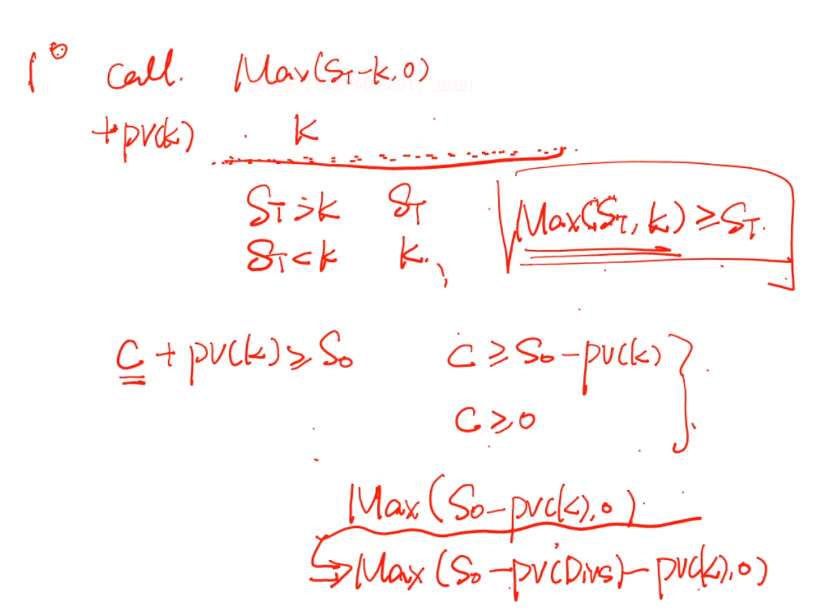 1° Call. Max(S_T-k,0)
+pv(k) k
S_T≥k S_T
S_T<k k.
Max(S_T,k)≥S_T.
C+pv(k)≥S_0 C≥S_0-pv(k)
C≥0
Max(S_0-pv(k),0)
Max(S_0-pv(Divs)-pv(k),0)